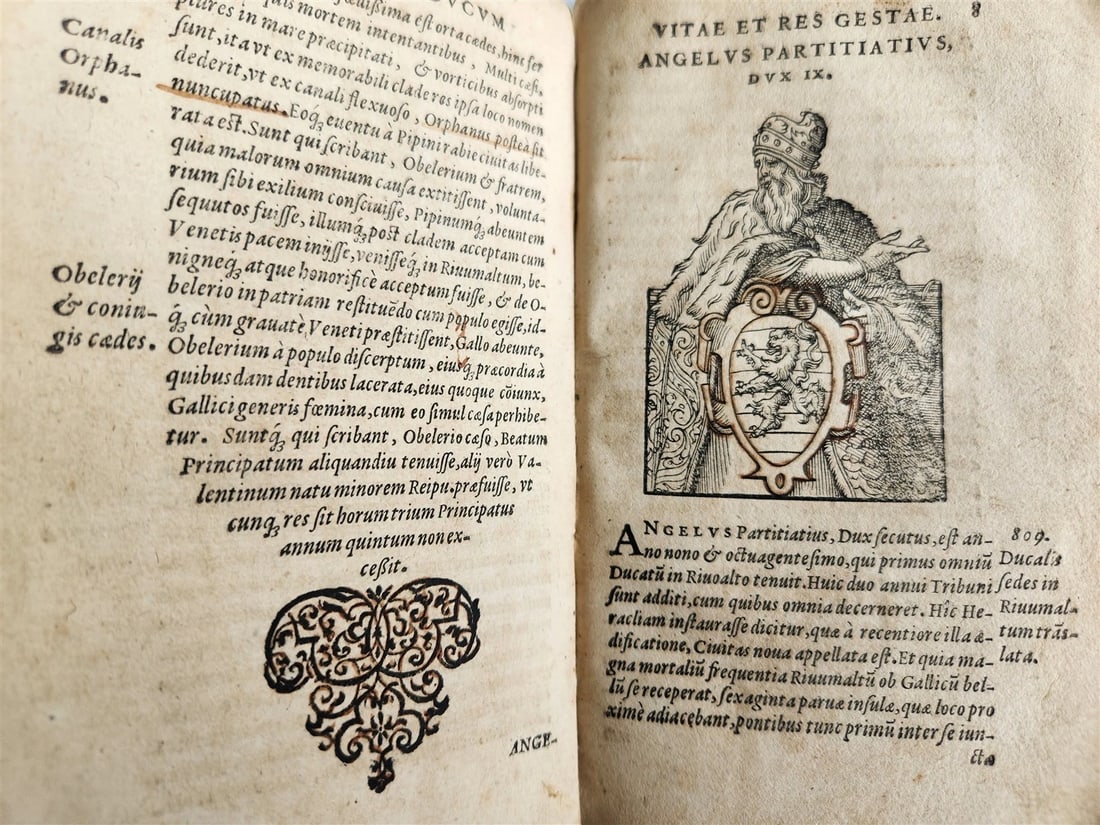 DVCVM
mortem intentantibus, Multi cæsi,
plures in mare præcipitati, & vorticibus absorpti
sunt, ita vt ex memorabili clade res ipsa loco nomen
dederit, vt ex canali flexuoso, Orphanus posteà sit
nuncupatus. Eoq́; euentu à Pipini rabie ciuitas libe-
rata est. Sunt qui scribant, Obelerium & fratrem,
quia malorum omnium causa extitissent, volunta-
rium sibi exilium consciuisse, Pipinumq́; abeuntem
sequutos fuisse, illumq́; post cladem acceptam cum
Venetis pacem inijsse, venisseq́; in Riuumaltum, be-
nigneq́; atque honorificè acceptum fuisse, & de O-
belerio in patriam restituẽdo cum populo egisse, id-
q́; cum grauatè Veneti præstitissent, Gallo abeunte,
Obelerium à populo discerptum, eiusq́; præcordia à
quibusdam dentibus lacerata, eius quoque cõiunx,
Gallici generis fœmina, cum eo simul cæsa perhibe-
tur. Suntq́; qui scribant, Obelerio cæso, Beatum
Principatum aliquandiu tenuisse, alij verò Va-
lentinum natu minorem Reipu. præfuisse, vt
cunq́; res sit horum trium Principatus
annum quintum non ex-
ceßit.
Canalis
Orpha-
nus.
Obelerij
& coniu-
gis cædes.
ANGE-
VITAE ET RES GESTAE. 8
ANGELVS PARTITIATIVS,
DVX IX.
ANGELVS Partitiatius, Dux secutus, est an-
no nono & octuagentesimo, qui primus omniũ
Ducatũ in Riuoalto tenuit. Huic duo annui Tribuni
sunt additi, cum quibus omnia decerneret. Hîc He-
racliam instaurasse dicitur, quæ à recentiore illa æ-
dificatione, Ciuitas noua appellata est. Et quia ma-
gna mortaliũ frequentia Riuumaltũ ob Gallicũ bel-
lũ se receperat, sexaginta paruæ insulæ, quæ loco pro
ximè adiacebant, pontibus tunc primũ inter se iun-
ctæ
809.
Ducalis
sedes in
Riuumal-
tum trãs-
lata.